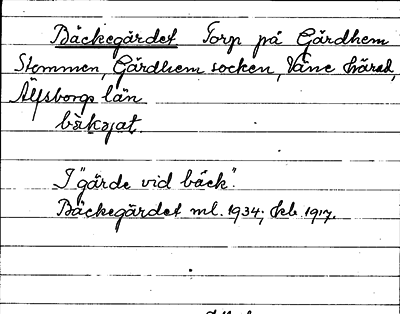 Bäckegärdet Torp på Gärdhem
Stommen, Gärdhem socken, Väne härad,
Älfsborgs län
I "gärde vid bäck".
Bäckegärdet ml. 1934; kb 1917.